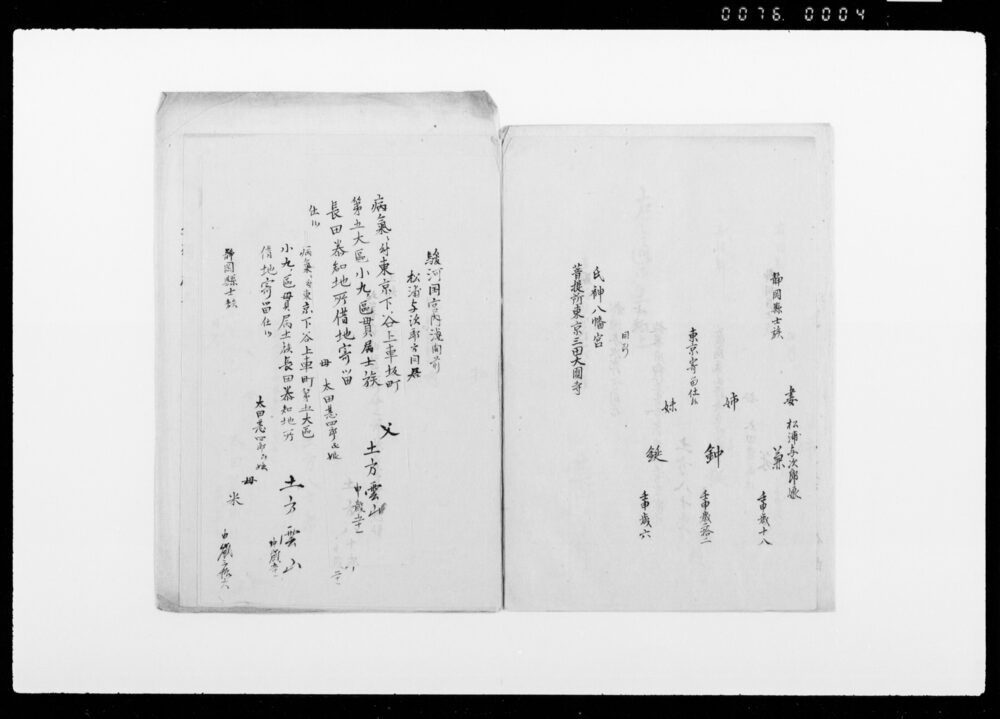 0076 0004
静岡縣士族
妻 松浦与次郎娘
兼
壬申歳十八
東京寄留仕候
姉
鉀
壬申歳拾二
妹
鋌
壬申歳六
氏神八幡宮
菩提所東京三田大圓寺
駿河国宮内
松浦与次郎方同居
病氣ニ付東京下谷上車坂町
第五大區小九ノ區貫属士族
長田泰知地所借地寄留
仕候
父
土方雲山
母 太田甚四郎亡娘
病氣ニ付東京下谷上車町第五大區
小九ノ區貫属士族長田泰知地所
借地寄留仕候
土方雲山
静岡縣士族
太田甚四郎亡娘
母
米